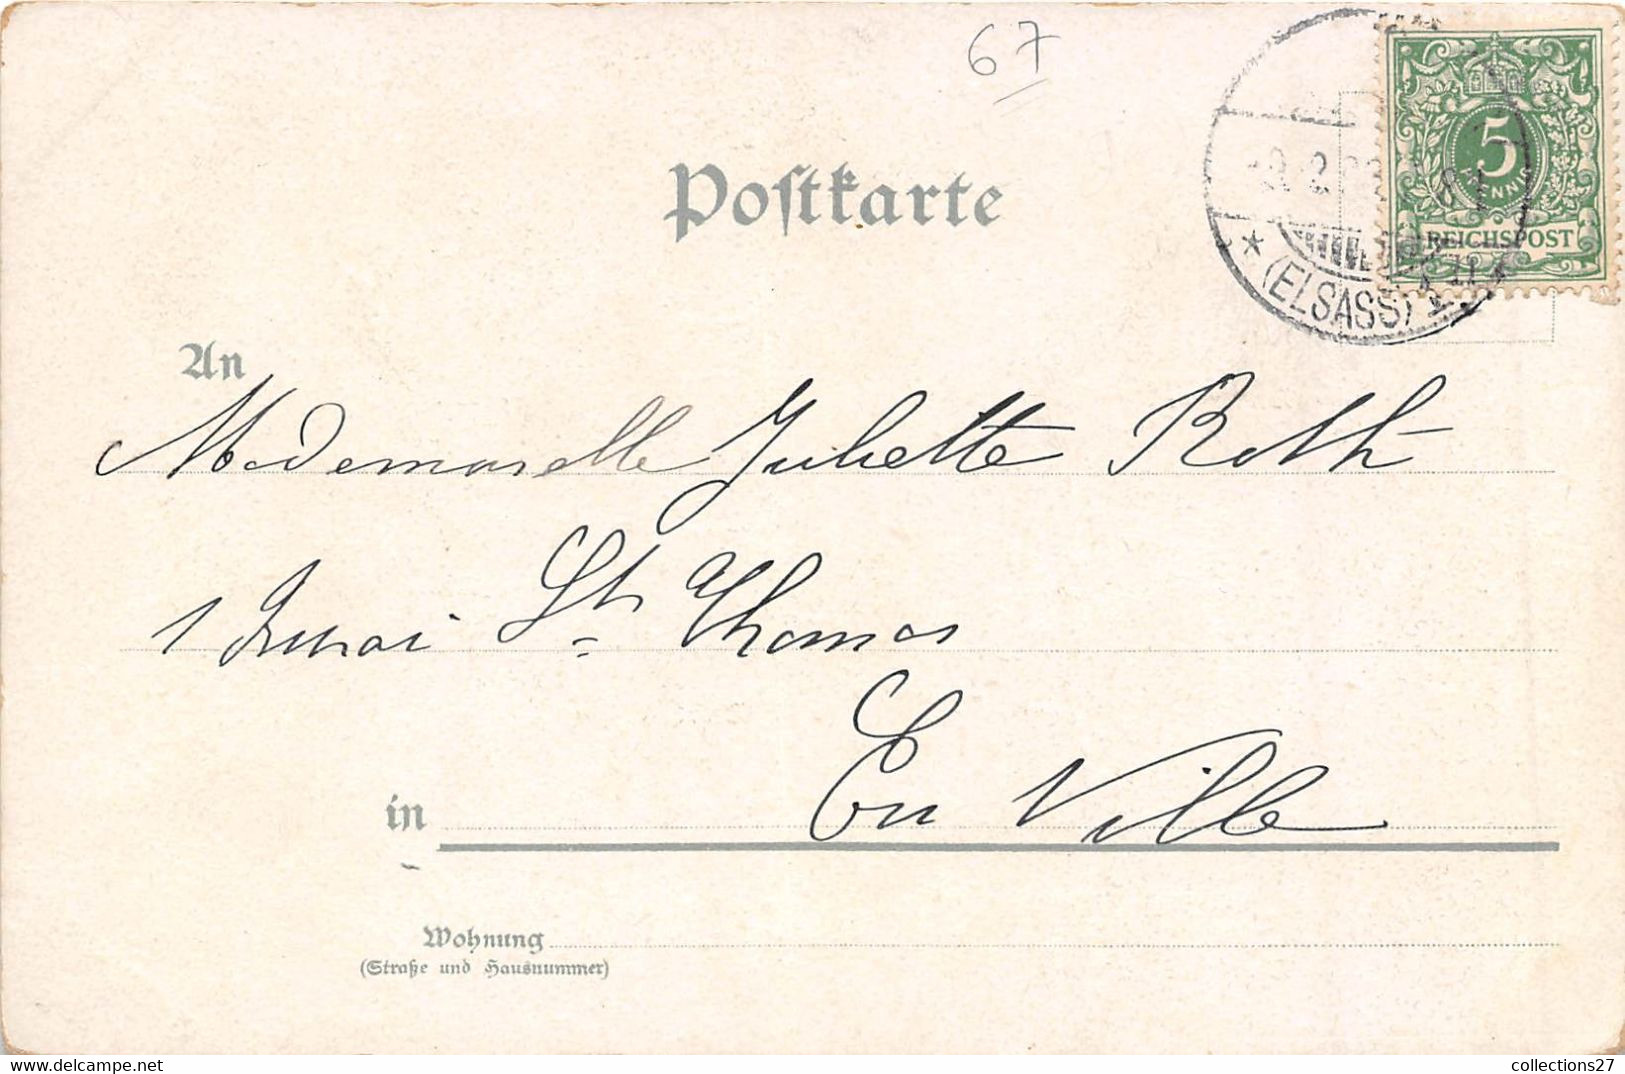 67
Postkarte
5
PFENNIG
REICHSPOST
(ELSASS)
An
Mademoiselle Juliette Roth
1 Quai St Thomas
En Ville
in
Wohnung
(Straße und Hausnummer)
www.delcampe.net
collections27